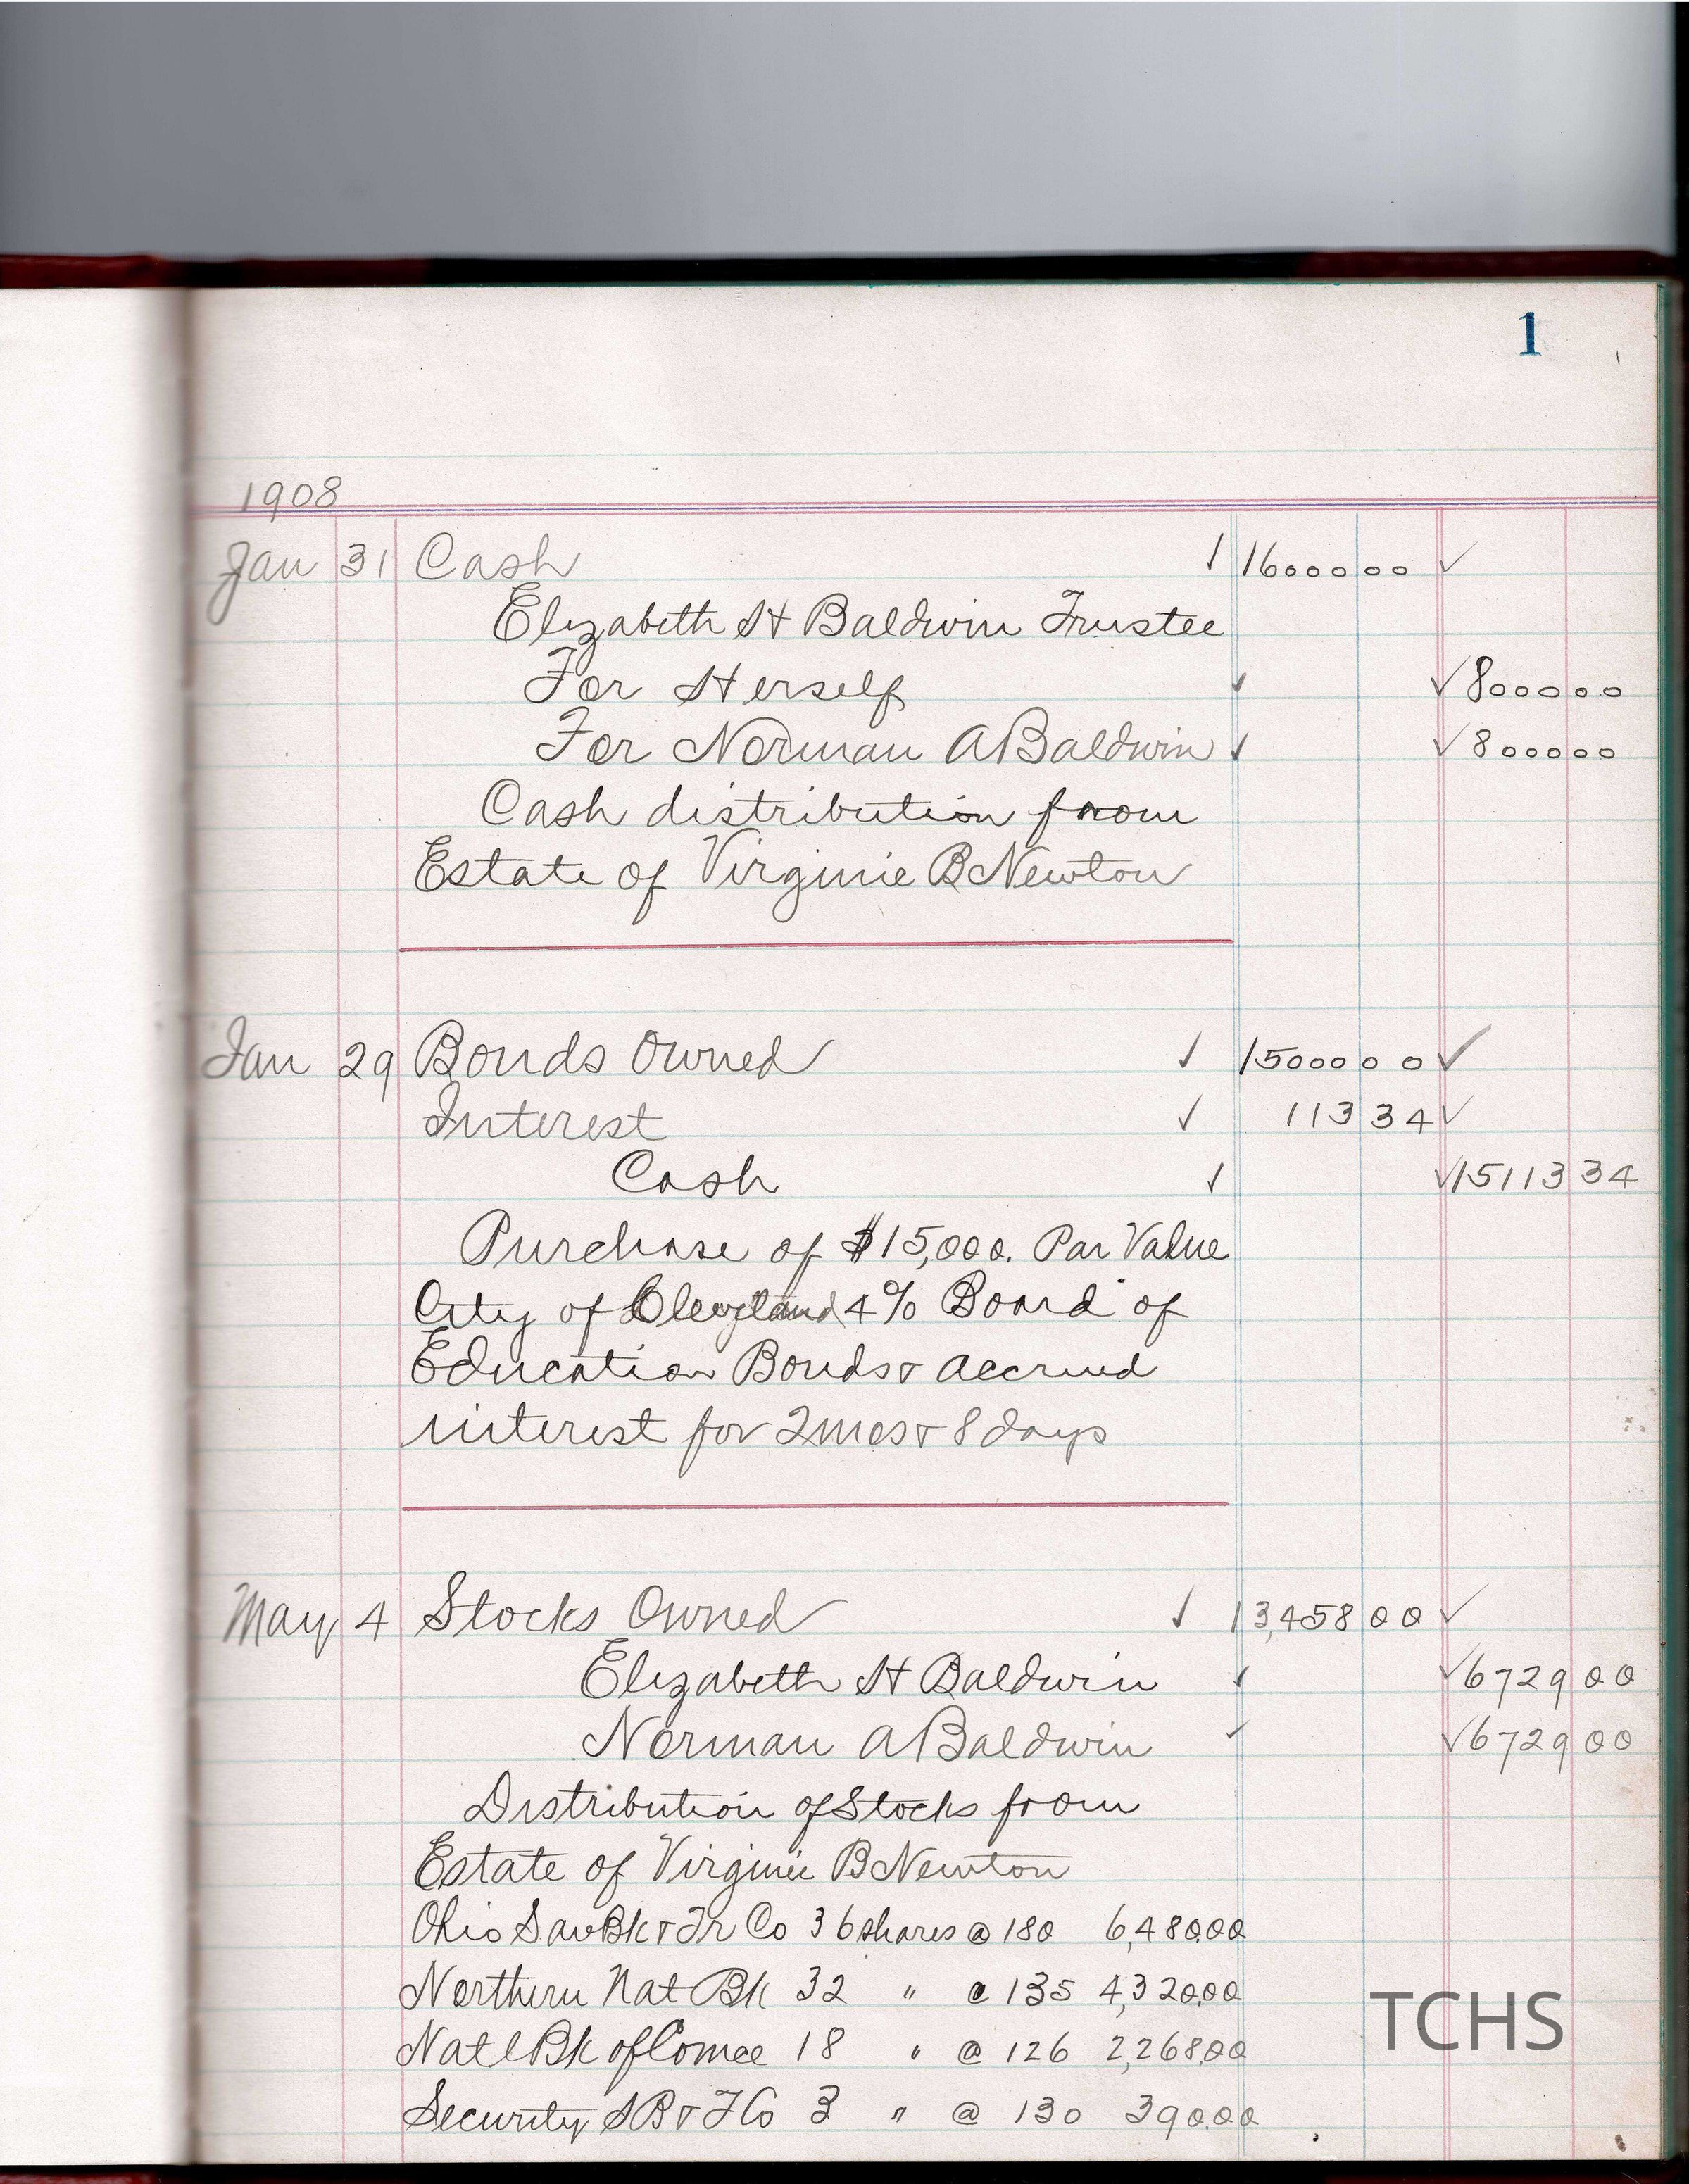 1
1908
Jan 31 Cash 16000 00
Elizabeth H Baldwin Trustee
For Herself 8000 00
For Norman A Baldwin 8000 00
Cash distribution from
Estate of Virginie B Newton
Jan 29 Bonds Owned 15000 00
Interest 113 34
Cash 15113 34
Purchase of $15,000. Par Value
City of Cleveland 4% Board of
Education Bonds & Accrued
interest for 2 mos & 8 days
May 4 Stocks Owned 13,458 00
Elizabeth H Baldwin 6729 00
Norman A Baldwin 6729 00
Distribution of Stocks from
Estate of Virginie B Newton
Ohio Sav Bk & Tr Co 36 shares @ 180 6,480.00
Northern Nat Bk 32 " @ 135 4,320.00
Natl Bk of Comce 18 " @ 126 2,268.00
Security S B & T Co 3 " @ 130 390.00
TCHS